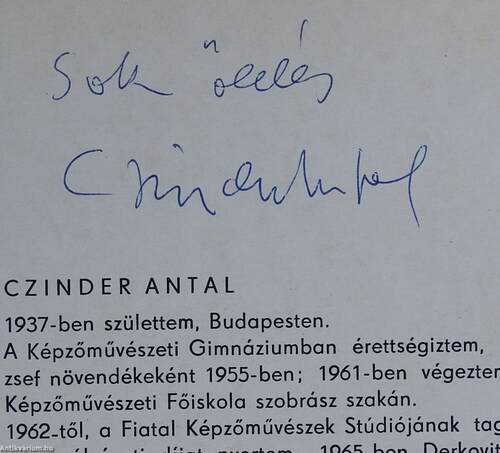 Sok
Czinder Antal
CZINDER ANTAL
1937-ben születtem, Budapesten.
A Képzőművészeti Gimnáziumban érettségiztem,
zsef növendékeként 1955-ben; 1961-ben végeztem
Képzőművészeti Főiskola szobrász szakán.
1962-től, a Fiatal Képzőművészek Stúdiójának tag
nyertem. 1965-ben Derkovit
Antikvarium.hu